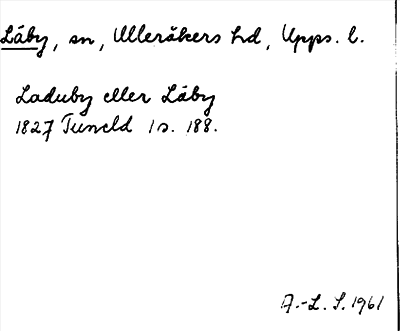 Låby, sn, Ulleråkers hd, Upps. l.
Laduby eller Låby
1827 Tuneld 1 s. 188.
A.-L. S. 1961